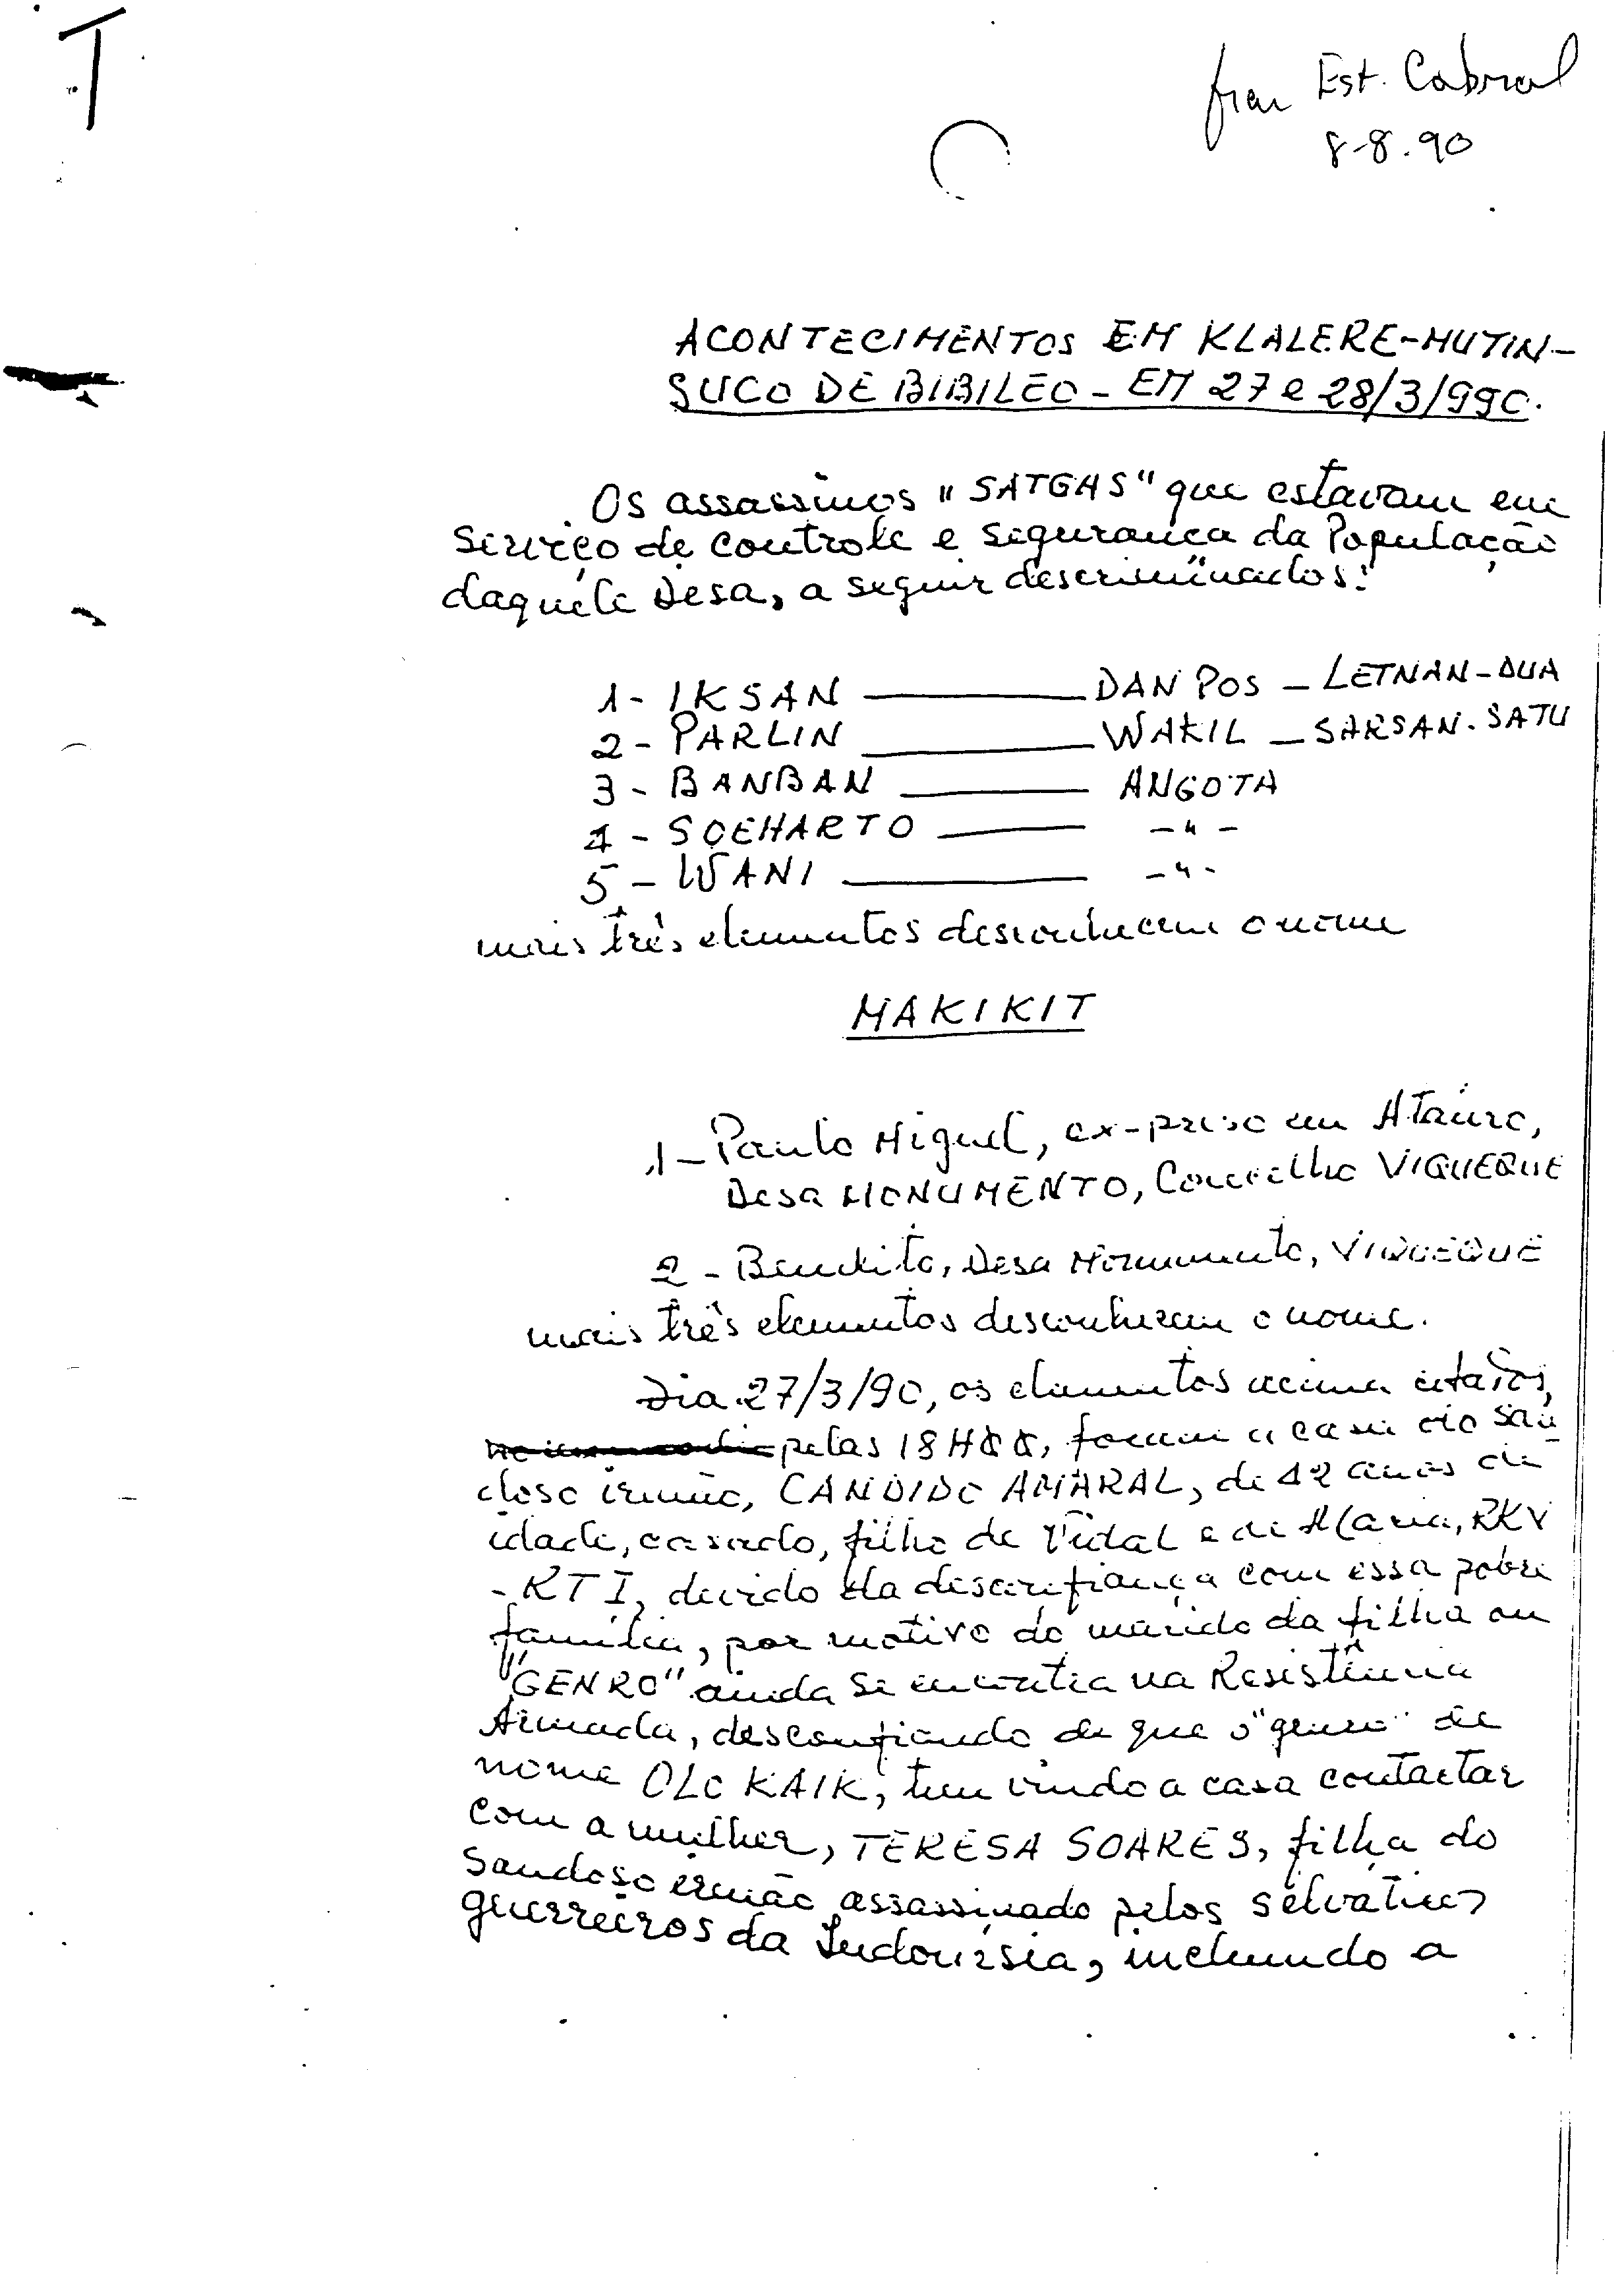 T
Est. Cabral
8-8.90
ACONTECIMENTOS EM KLALERE-MUTIN-
SUCO DE BIBILEO - EM 27 e 28/3/990.
Os assassinos "SATGAS" que estavam em
Serviço de controle e segurança da População
daquele Desa, a seguir descriminados:
1- IKSAN ——— DAN POS - LETNAN-DUA
2- PARLIN ——— WAKIL - SARSAN. SATU
3- BANBAN ——— ANGOTA
4- SOEHARTO ——— -"-
5- WANI ——— -"-
mais três elementos desconhecem o nome
MAKIKIT
1- Paulo Miguel, ex-preso em Ataúro,
Desa MONUMENTO, Concelho VIQUEQUE
2- Bendito, Desa Monumento, VIQUEQUE
mais três elementos desconhecem o nome.
Dia 27/3/90, os elementos acima citados,
pelas 18H00, foram a casa do sau
doso irmão, CANDIDO AMARAL, de 42 anos de
idade, casado, filho de Vidal e de Maria, RKV
- RTI, devido da desconfiança com essa pobre
família, por motivo do marido da filha ou
"GENRO" ainda se encontra na Resistência
Armada, desconfiando de que o "genro" de
nome OLO KAIK, tem vindo a casa contactar
com a mulher, TERESA SOARES, filha do
Saudoso irmão assassinado pelos selváticos
guerreiros da Indonésia, incluindo a